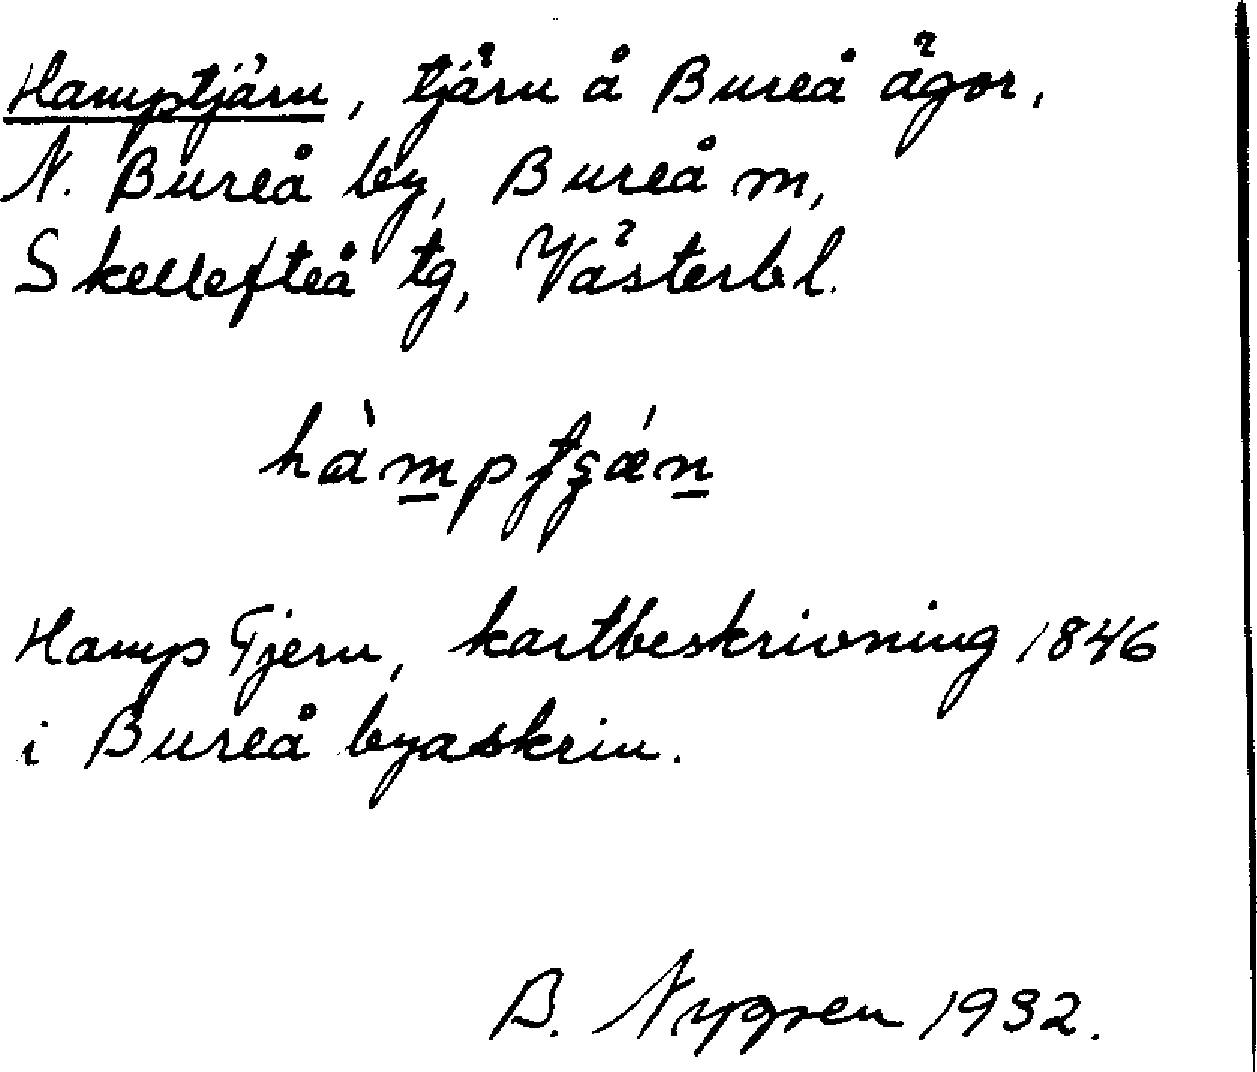 Hamptjärn, tjärn å Bureå ägor,
N. Bureå by, Bureå m,
Skellefteå tg, Västerbl.
hàmptʂǽn
Hamp Tjern, kartbeskrivning 1846
i Bureå byaskrin.
B. Nygren 1932.